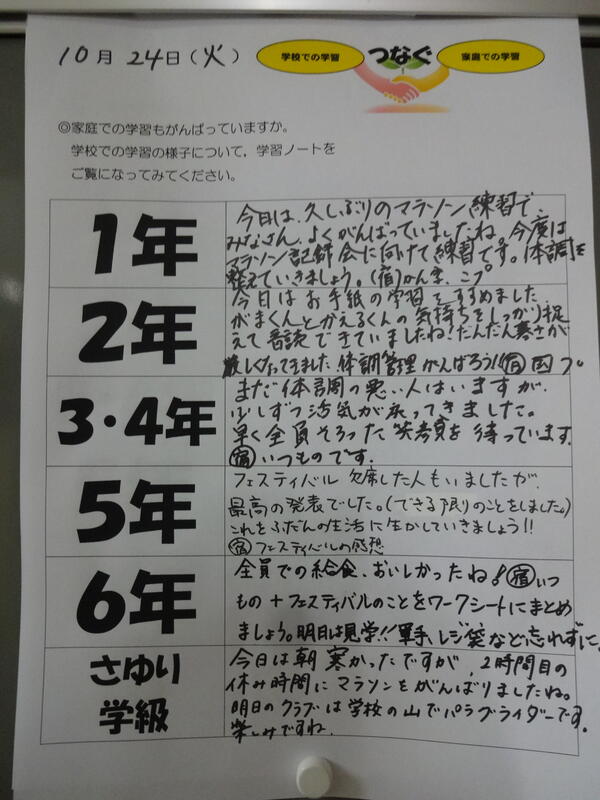 10月24日(火)
学校での学習 つなぐ 家庭での学習
◎家庭での学習もがんばっていますか。
学校での学習の様子について，学習ノートを
ご覧になってみてください。
1年
今日は、久しぶりのマラソン練習で、
みなさん、よくがんばっていましたね。今度は
マラソン記録会に向けて練習です。体調を
整えていきましょう。(宿)かん字、こプ
2年
今日はお手紙の学習をすすめました
がまくんとかえるくんの気持ちをしっかり捉
えて音読できていましたね!だんだん寒さが
厳しくなってきました 体調管理がんばろう!宿国プ
3・4年
まだ体調の悪い人はいますが、
少しずつ活気が戻ってきました。
早く全員そろった笑顔を待っています。
宿いつものです。
5年
フェスティバル 欠席した人もいましたが、
最高の発表でした。(できる限りのことをしました。)
これをふだんの生活に生かしていきましょう!!
宿フェスティバルの感想
6年
全員での給食、おいしかったね!宿いつ
もの+フェスティバルのことをワークシートにまとめ
ましょう。明日は見学!!軍手、レジ袋など忘れずに。
さゆり
学級
今日は朝寒かったですが、2時間目の
休み時間にマラソンをがんばりましたね。
明日のクラブは学校の山でパラグライダーです。
楽しみですね。